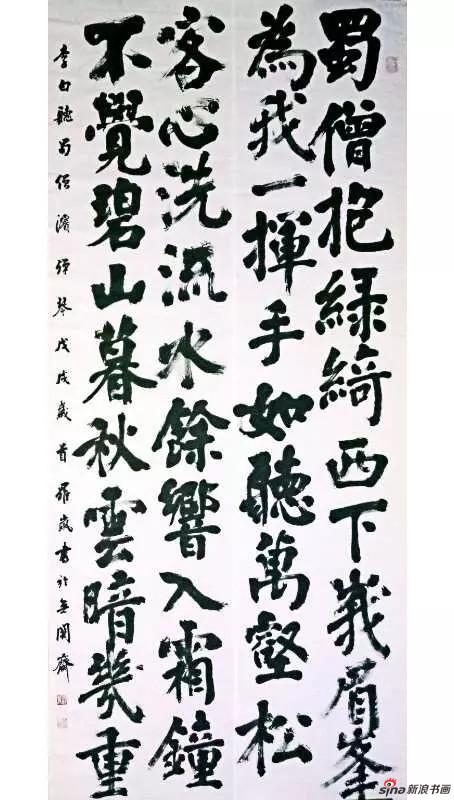 蜀僧抱緑綺西下峩眉峯
為我一揮手如聽萬壑松
客心洗流水餘響入霜鐘
不覺碧山暮秋雲暗幾重
李白聽蜀僧濬弹琴戊戌歲首羅書於齋
sina新浪书画